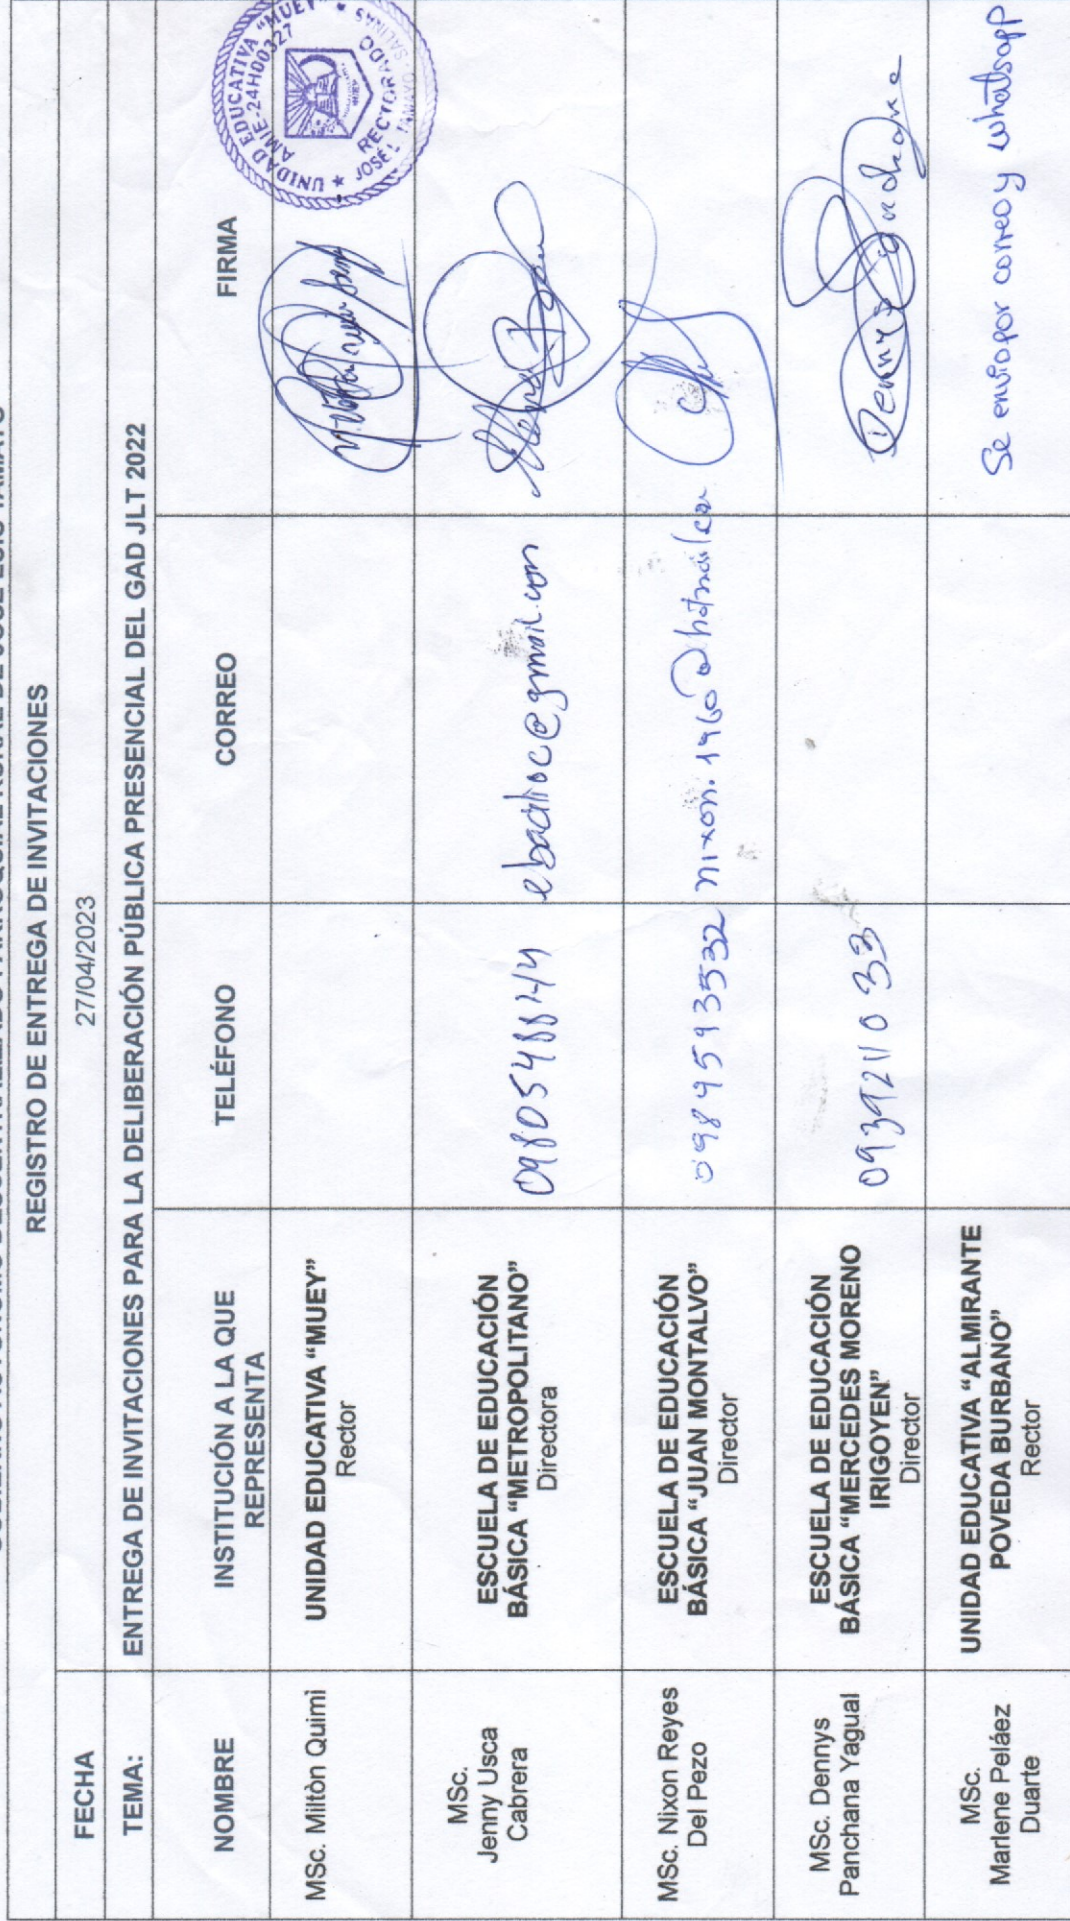 REGISTRO DE ENTREGA DE INVITACIONES
FECHA
27/04/2023
TEMA:
ENTREGA DE INVITACIONES PARA LA DELIBERACIÓN PÚBLICA PRESENCIAL DEL GAD JLT 2022
NOMBRE
INSTITUCIÓN A LA QUE
REPRESENTA
TELÉFONO
CORREO
FIRMA
MSc. Miltòn Quimi
UNIDAD EDUCATIVA “MUEY”
Rector
UNIDAD EDUCATIVA "MUEY" ★ SALINAS
AMIE-24H00327
RECTORADO
JOSÉ L. TAMAYO
MSc.
Jenny Usca
Cabrera
ESCUELA DE EDUCACIÓN
BÁSICA “METROPOLITANO”
Directora
MSc. Nixon Reyes
Del Pezo
ESCUELA DE EDUCACIÓN
BÁSICA “JUAN MONTALVO”
Director
MSc. Dennys
Panchana Yagual
ESCUELA DE EDUCACIÓN
BÁSICA “MERCEDES MORENO
IRIGOYEN”
Director
0939211033
Dennys Panchana
MSc.
Marlene Peláez
Duarte
UNIDAD EDUCATIVA “ALMIRANTE
POVEDA BURBANO”
Rector
Se envio por correo y whatsapp